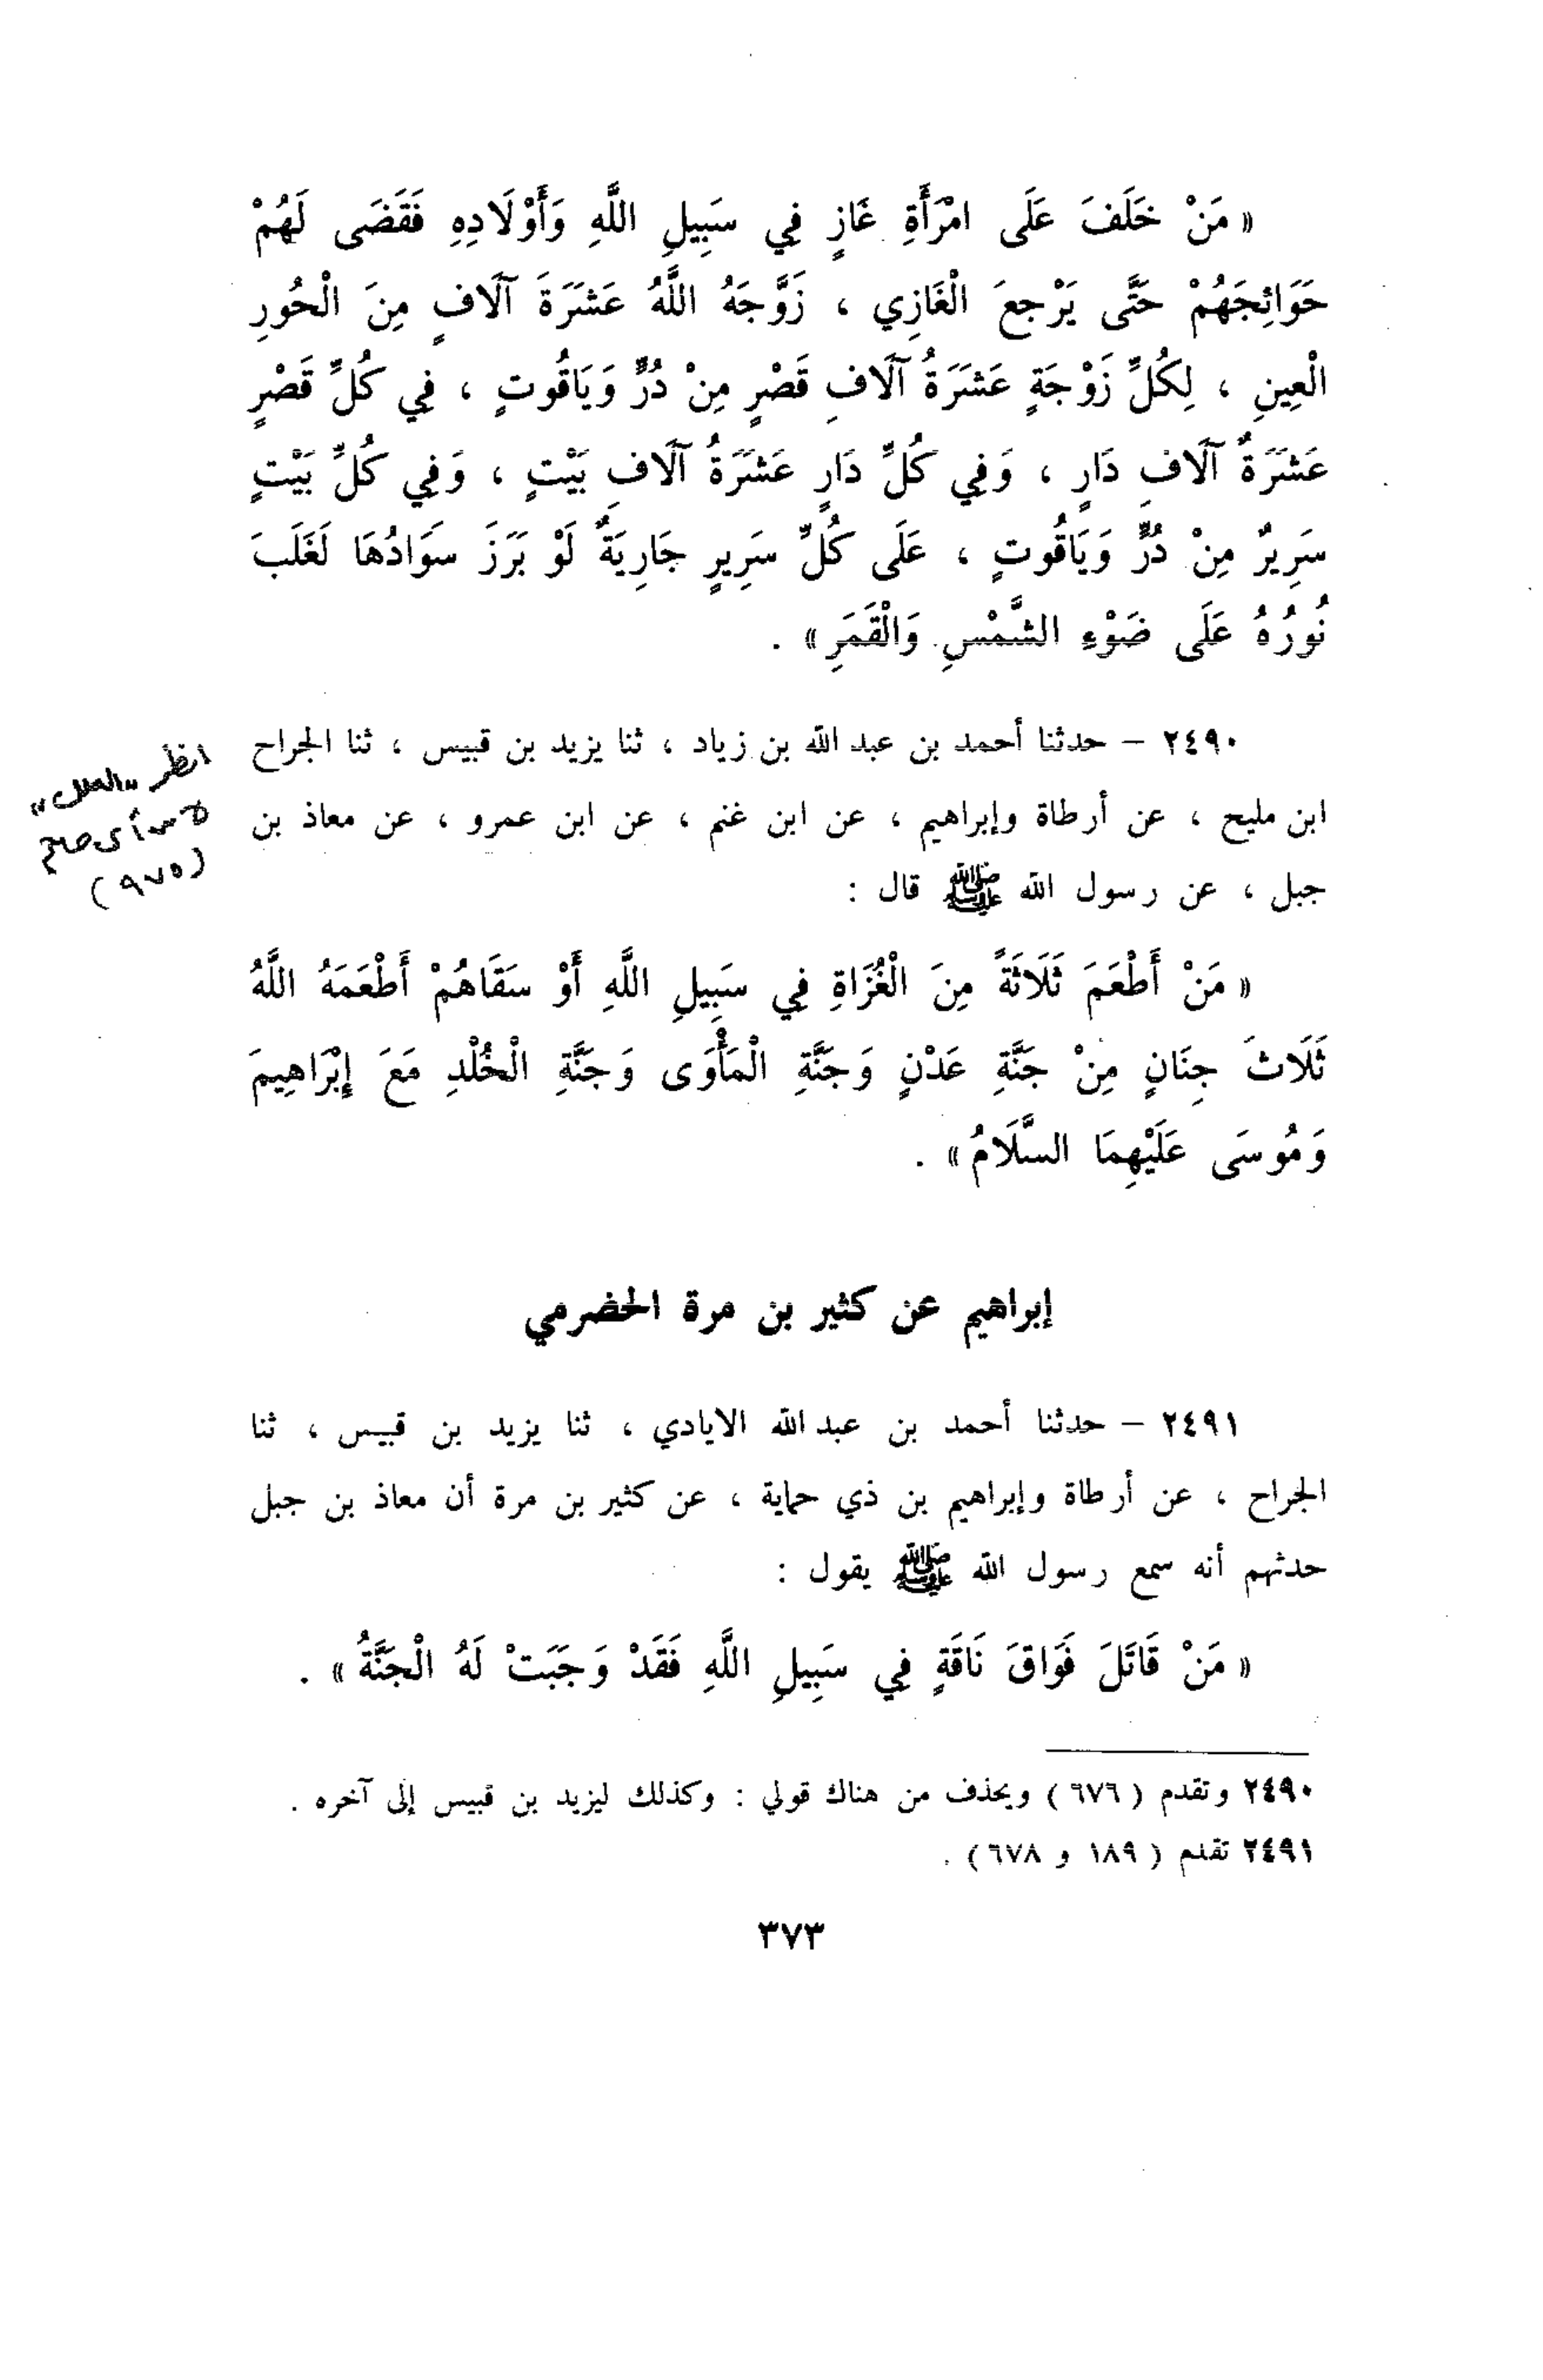 « مَنْ خَلَفَ عَلَى امْرَأَةِ غَازٍ فِي سَبِيلِ اللَّهِ وَأَوْلَادِهِ فَقَضَى لَهُمْ
حَوَائِجَهُمْ حَتَّى يَرْجعَ الْغَازِي ، زَوَّجَهُ اللَّهُ عَشَرَةَ آلَافٍ مِنَ الْحُورِ
الْعِينِ ، لِكُلِّ زَوْجَةٍ عَشَرَةُ آلَافِ قَصْرٍ مِنْ دُرٍّ وَيَاقُوتٍ ، فِي كُلِّ قَصْرٍ
عَشَرَةُ آلَافِ دَارٍ ، وَفِي كُلِّ دَارٍ عَشَرَةُ آلَافِ بَيْتٍ ، وَفِي كُلِّ بَيْتٍ
سَرِيرٌ مِنْ دُرٍّ وَيَاقُوتٍ ، عَلَى كُلِّ سَرِيرٍ جَارِيَةٌ لَوْ بَرَزَ سَوَادُهَا لَغَلَبَ
نُورُهُ عَلَى ضَوْءِ الشَّمْسِ وَالْقَمَرِ » .
٢٤٩٠ – حدثنا أحمد بن عبد الله بن زياد ، ثنا يزيد بن قبيس ، ثنا الجراح
ابن مليح ، عن أرطاة وإبراهيم ، عن ابن غنم ، عن ابن عمرو ، عن معاذ بن
جبل ، عن رسول الله ﷺ قال :
انظر «العلل»
لابن أبي حاتم
(٩٧٥)
« مَنْ أَطْعَمَ ثَلَاثَةً مِنَ الْغُزَاةِ فِي سَبِيلِ اللَّهِ أَوْ سَقَاهُمْ أَطْعَمَهُ اللَّهُ
ثَلَاثَ جِنَانٍ مِنْ جَنَّةِ عَدْنٍ وَجَنَّةِ الْمَأْوَى وَجَنَّةِ الْخُلْدِ مَعَ إِبْرَاهِيمَ
وَمُوسَى عَلَيْهِمَا السَّلَامُ » .
إبراهيم عن كثير بن مرة الحضرمي
٢٤٩١ – حدثنا أحمد بن عبد الله الايادي ، ثنا يزيد بن قبيس ، ثنا
الجراح ، عن أرطاة وإبراهيم بن ذي حماية ، عن كثير بن مرة أن معاذ بن جبل
حدثهم أنه سمع رسول الله ﷺ يقول :
« مَنْ قَاتَلَ فَوَاقَ نَاقَةٍ فِي سَبِيلِ اللَّهِ فَقَدْ وَجَبَتْ لَهُ الْجَنَّةُ » .
٢٤٩٠ وتقدم ( ٦٧٦ ) ويحذف من هناك قولي : وكذلك ليزيد بن قبيس إلى آخره .
٢٤٩١ تقدم ( ١٨٩ و ٦٧٨ ) .
٣٧٣